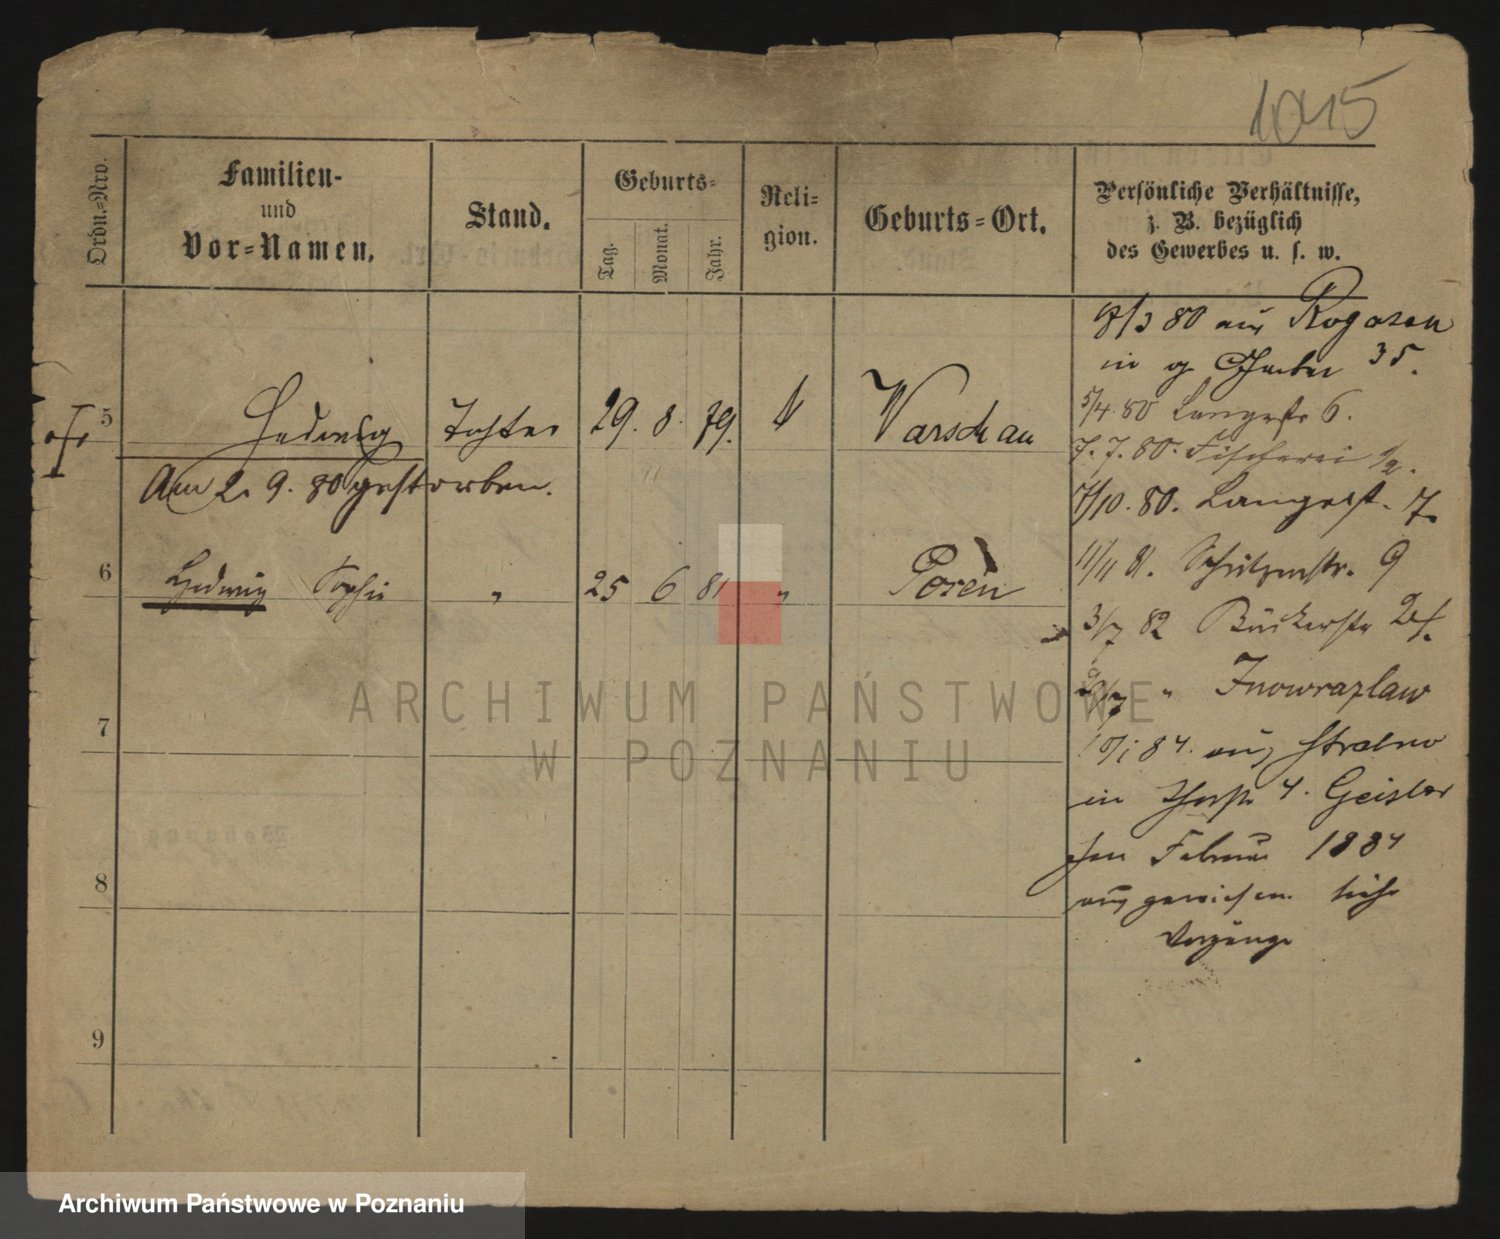 1015
Ordn.=Nro.
Familien-
und
Vor=Namen.
Stand.
Geburts=
Tag.
Monat.
Jahr.
Reli=
gion.
Geburts=Ort.
Persönliche Verhältnisse,
z. B. bezüglich
des Gewerbes u. s. w.
5 Hedwig Tochter 29. 8. 79. Warschau
Am 2. 9. 80 gestorben.
6 Hedwig Sophie " 25 6 81 " Posen
7
8
9
/3 80 aus Rogasen
in 35.
5/4. 80 Langestr 6.
7. 7. 80. Fischerei
7/10. 80. Langestr. 7.
11/11 81. Schützenstr. 9
3/7 82 Bäckerstr
" Inowrazlaw
84. aus Strelno
in 4. Geisler
Im Februar 1884
ausgewiesen siehe
Vorgänge
ARCHIWUM PAŃSTWOWE
W POZNANIU
Archiwum Państwowe w Poznaniu